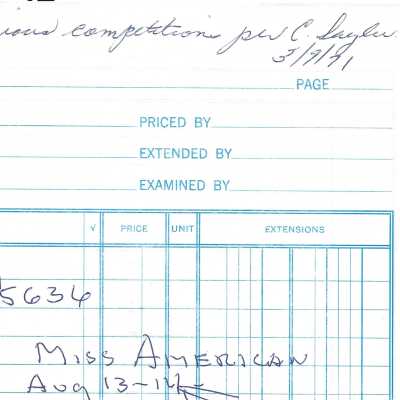 competitions per C. Saylor
3/9/91
PAGE
PRICED BY
EXTENDED BY
EXAMINED BY
√ PRICE UNIT EXTENSIONS
5636
MISS AMERICAN
Aug 13-14